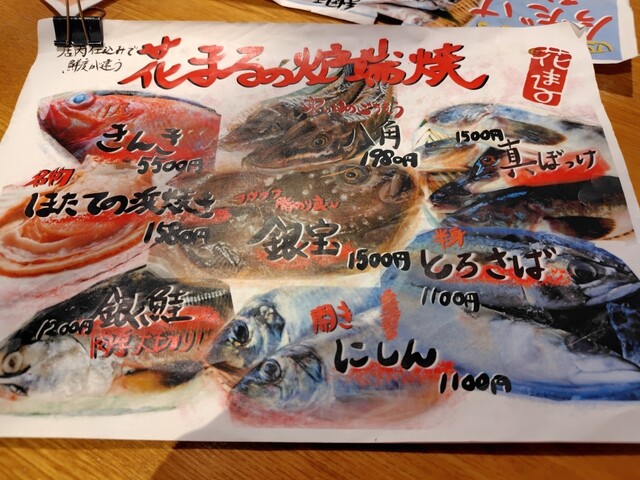 店内仕込みで
鮮度が違う
花まるの炉端焼
花まる
きんき
5500円
八角
1980円
1500円
真ぼっけ
名物
ほたての浜焼き
1580円
銀宝
1500円
半身
とろさば
1100円
1200円
銀鮭
開き
にしん
1100円